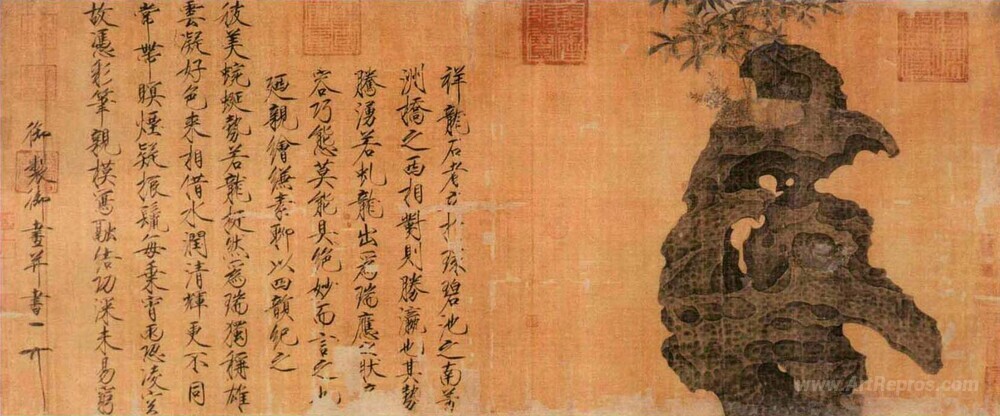 祥龍石者立於環碧池之南芳
洲橋之西相對則勝瀛也其勢
騰湧若虬龍出為瑞應之狀奇
容巧態莫能具絕妙而言之也
廼親繪縑素聊以四韻紀之
彼美蜿蜒勢若龍挺然為瑞獨稱雄
雲凝好色來相借水潤清輝更不同
常帶暝煙疑振鬣每乘宵雨恐凌空
故憑彩筆親模寫融結功深未易窮
御製御畫并書
www.ArtRepros.com